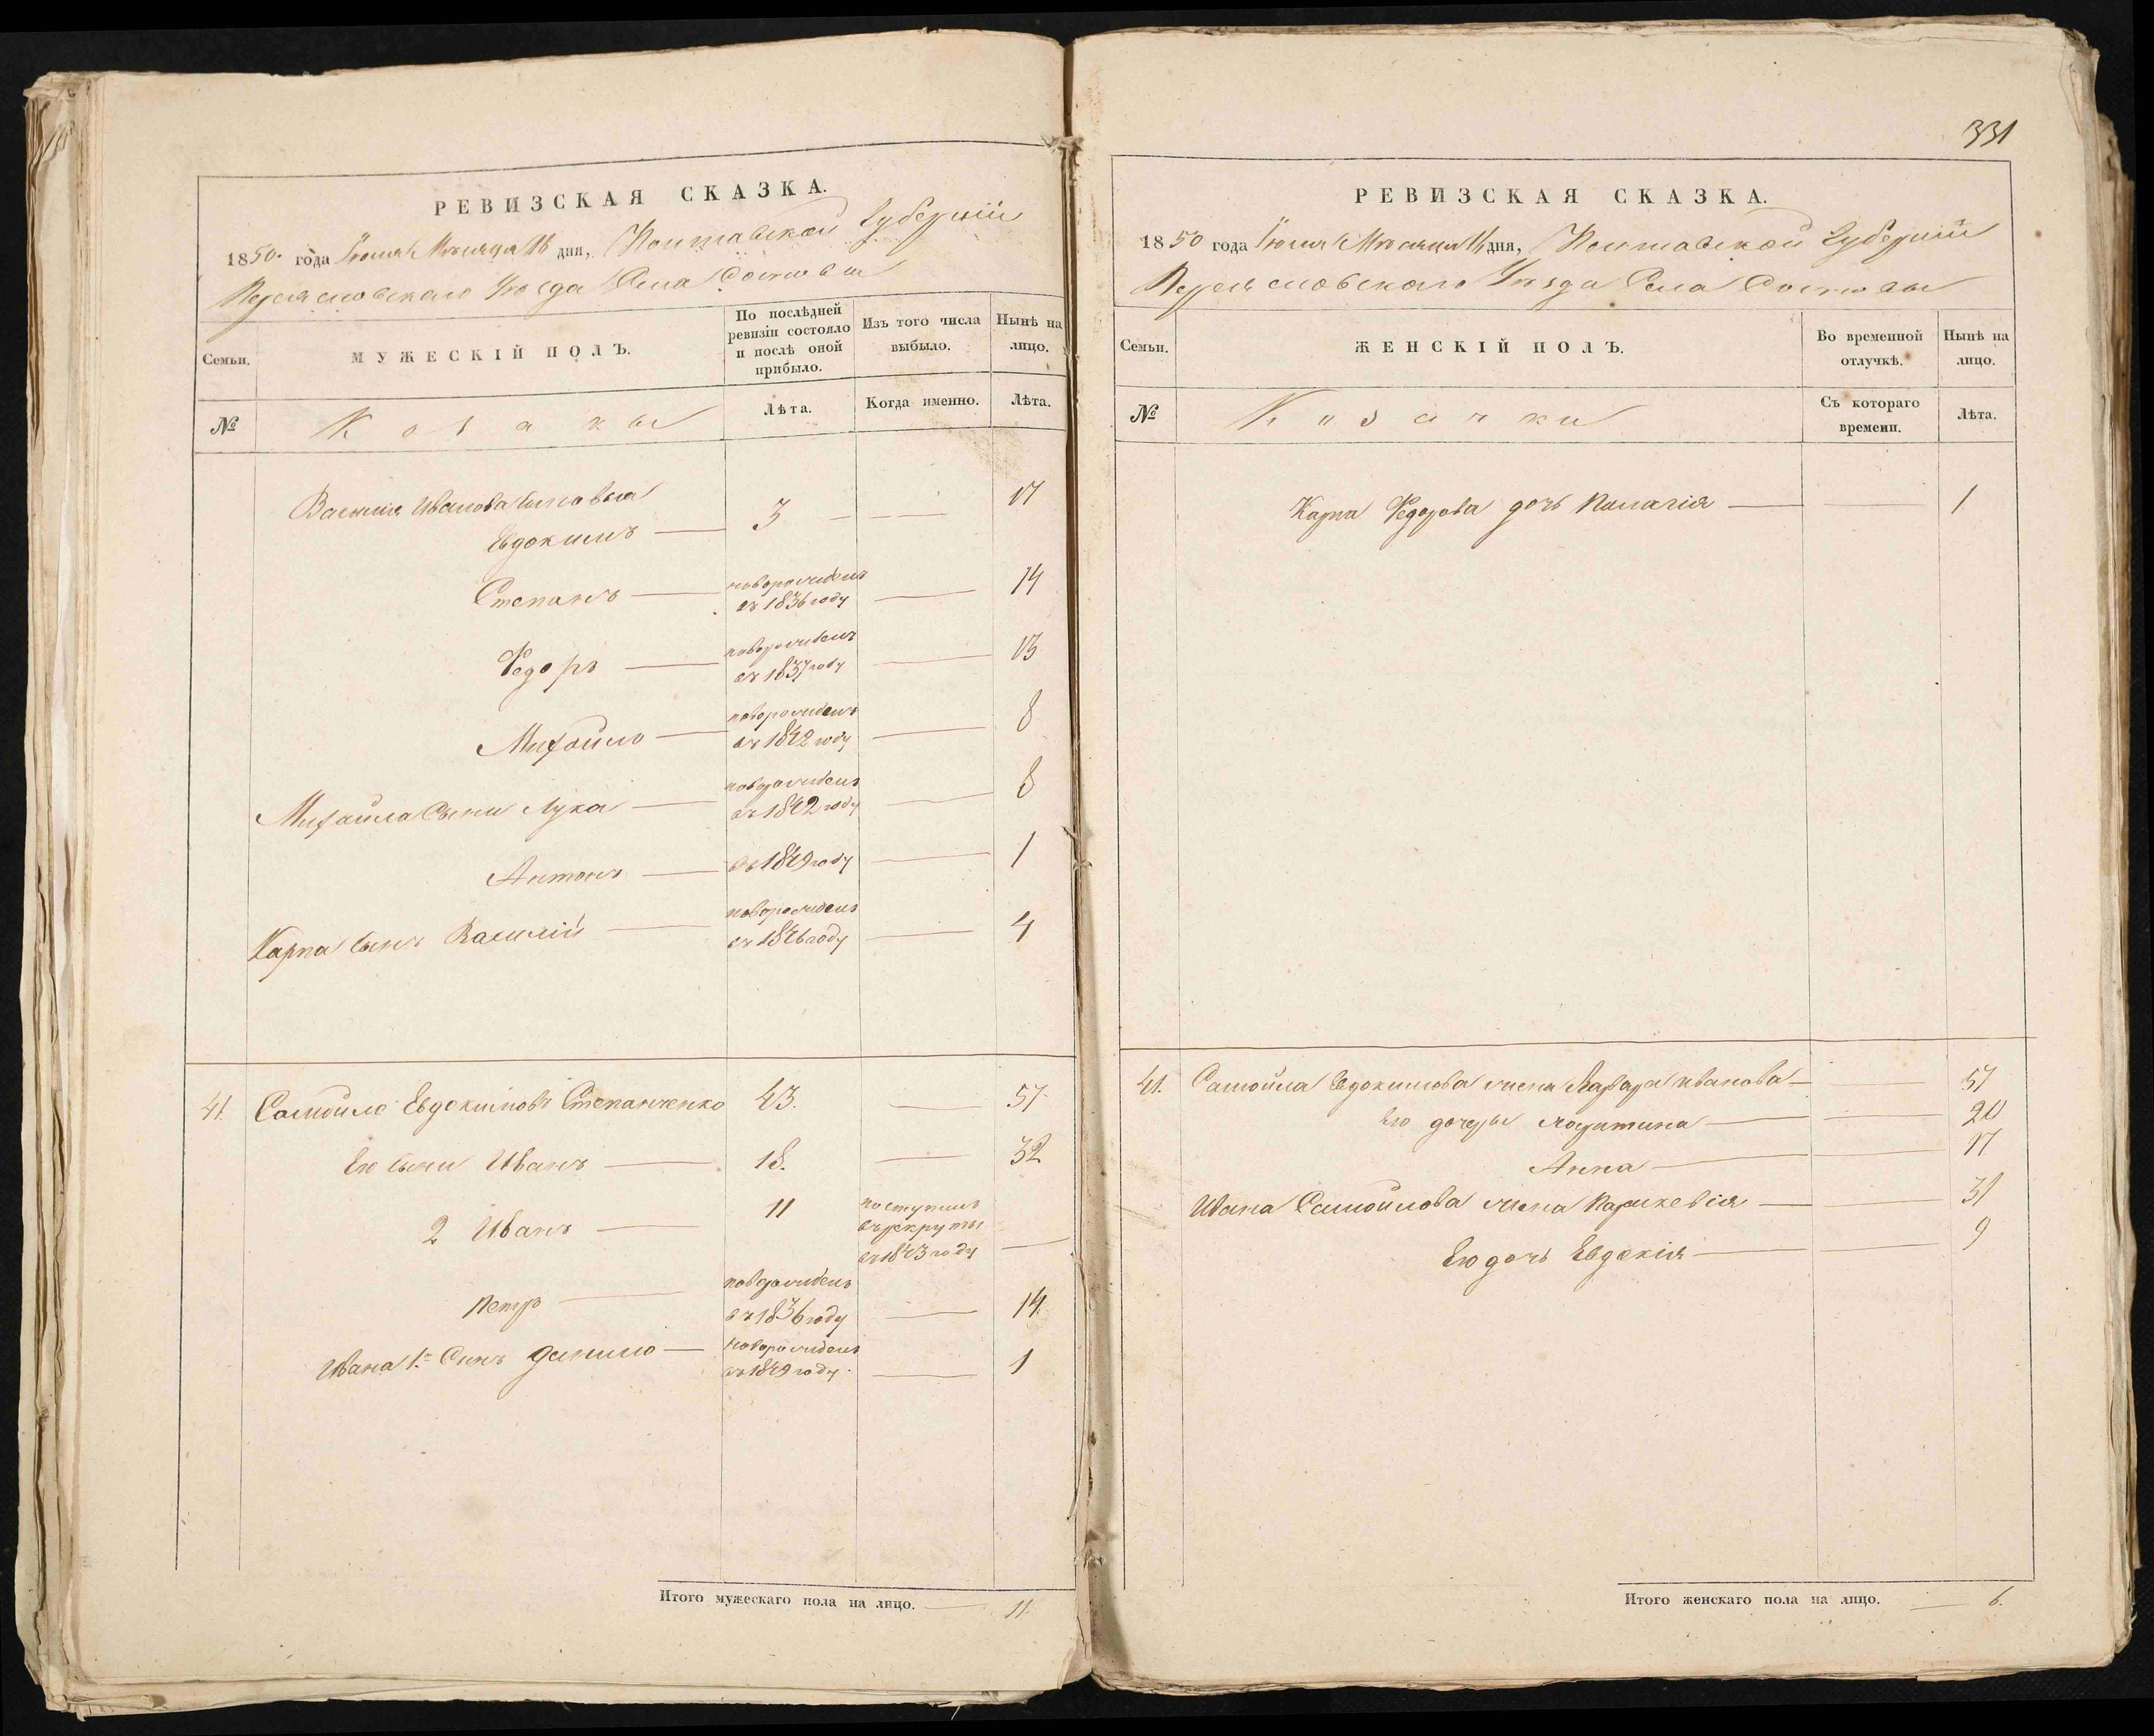 РЕВИЗСКАЯ СКАЗКА.
1850. года Іюня Мѣсяца 16 дня, Полтавской Губерніи
Переяславскаго Уѣзда Села Сосновы
Семьи.
МУЖЕСКІЙ ПОЛЪ.
По послѣдней ревизіи состояло и послѣ оной прибыло.
Изъ того числа выбыло.
Нынѣ на лицо.
№
Козаки
Лѣта.
Когда именно.
Лѣта.
Василія Иванова сыновья
Евдокимъ 3 17
Степанъ новорожденъ въ 1836 году 14
Федоръ новорожденъ въ 1837 году 13
Михайло новорожденъ въ 1842 году 8
Михайла Сыни Лука новорожденъ въ 1842 году 8
Антонъ въ 1849 году 1
Карпа сынъ Василій новорожденъ въ 1846 году 4
41. Самойло Евдокимовъ Степанченко 43. 57.
Его сыни Иванъ 18. 32
2 Иванъ 11 поступилъ въ рекруты въ 1843 году
Петръ новорожденъ въ 1836 году 14.
Ивана 1. Сынъ Данило новорожденъ въ 1849 году. 1
Итого мужескаго пола на лицо. 11.
331
РЕВИЗСКАЯ СКАЗКА.
1850 года Іюня Мѣсяца 16 дня, Полтавской Губерніи
Переяславскаго Уѣзда Села Сосновы
Семьи.
ЖЕНСКІЙ ПОЛЪ.
Во временной отлучкѣ.
Нынѣ на лицо.
№
Козачки
Съ котораго времени.
Лѣта.
Карпа Федорова дочь Палагія 1
41. Самойла Евдокимова жена Варвара Иванова 57
Его дочеры 20
Анна 17
Ивана Самойлова жена Параскевія 31
Его дочь Евдокія 9
Итого женскаго пола на лицо. 6.